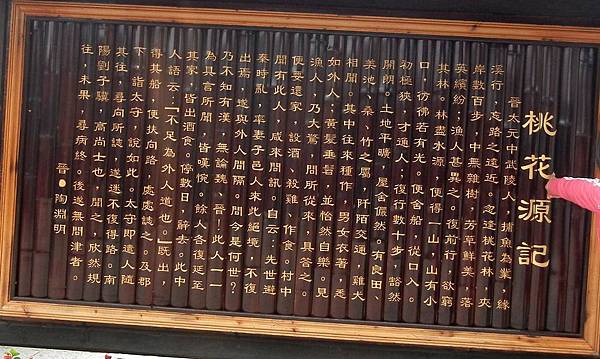 桃花源記
晉太元中武陵人，捕魚為業，緣
溪行，忘路之遠近。忽逢桃花林，夾
岸數百步，中無雜樹，芳草鮮美，落
英繽紛；漁人甚異之。復前行，欲窮
其林。林盡水源，便得一山，山有小
口，彷彿若有光。便舍船，從口入。
初極狹，才通人；復行數十步，豁然
開朗。土地平曠，屋舍儼然。有良田、
美池、桑、竹之屬，阡陌交通，雞犬
相聞。其中往來種作，男女衣著，悉
如外人；黃髮垂髫，並怡然自樂。見
漁人，乃大驚，問所從來，具答之。
便要還家，設酒、殺雞、作食。村中
聞有此人，咸來問訊。自云：先世避
秦時亂，率妻子邑人來此絕境，不復
出焉，遂與外人間隔。問今是何世？
乃不知有漢，無論魏、晉！此人一一
為具言所聞，皆嘆惋。餘人各復延至
其家，皆出酒食。停數日，辭去。此中
人語云：「不足為外人道也。」既出，
得其船，便扶向路，處處誌之。及郡
下，詣太守，說如此。太守即遣人隨
其往，尋向所誌，遂迷不復得路。南
陽劉子驥，高尚士也，聞之，欣然規
往，未果，尋病終。後遂無問津者。
晉●陶淵明